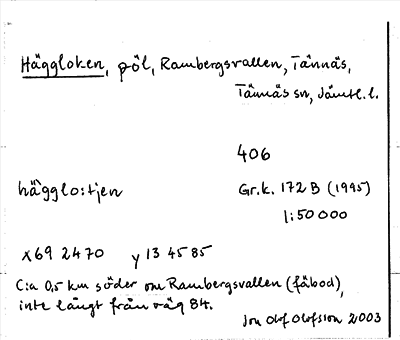 Häggloken, pöl, Rambergsvallen, Tännäs,
Tännäs sn, Jämtl. l.
406
hägglo:tjen
Gr.k. 172 B (1995)
1:50 000
x69 2470 y 13 45 85
C:a 0,5 km söder om Rambergsvallen (fäbod),
inte långt från väg 84.
Jon Olof Olofsson 2003